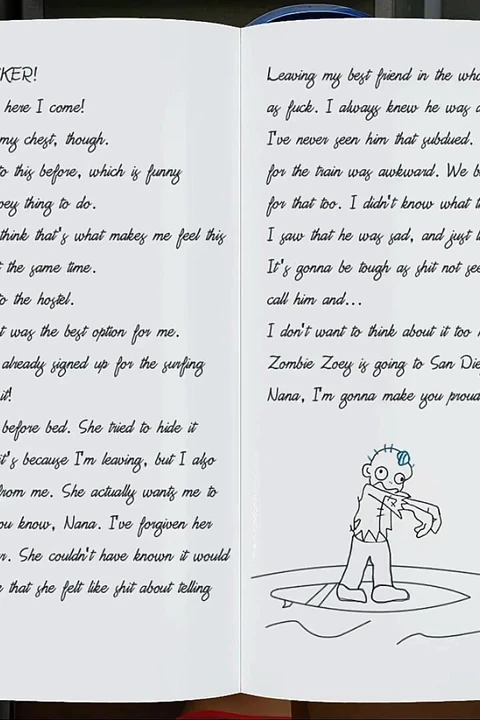 KER!
here I come!
my chest, though.
to this before, which is funny
oey thing to do.
think that's what makes me feel this
t the same time.
to the hostel.
t was the best option for me.
already signed up for the surfing
it!
before bed. She tried to hide it
it's because I'm leaving, but I also
from me. She actually wants me to
ou know, Nana. I've forgiven her
r. She couldn't have known it would
that she felt like shit about telling
Leaving my best friend in the who
as fuck. I always knew he was a
I've never seen him that subdued.
for the train was awkward. We b
for that too. I didn't know what t
I saw that he was sad, and just l
It's gonna be tough as shit not see
call him and...
I don't want to think about it too
Zombie Zoey is going to San Die
Nana, I'm gonna make you proud